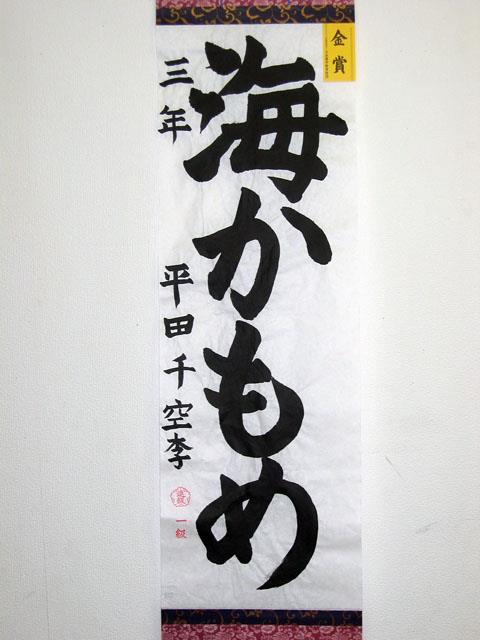 金賞
海かもめ
三年 平田千空李
進級
一級